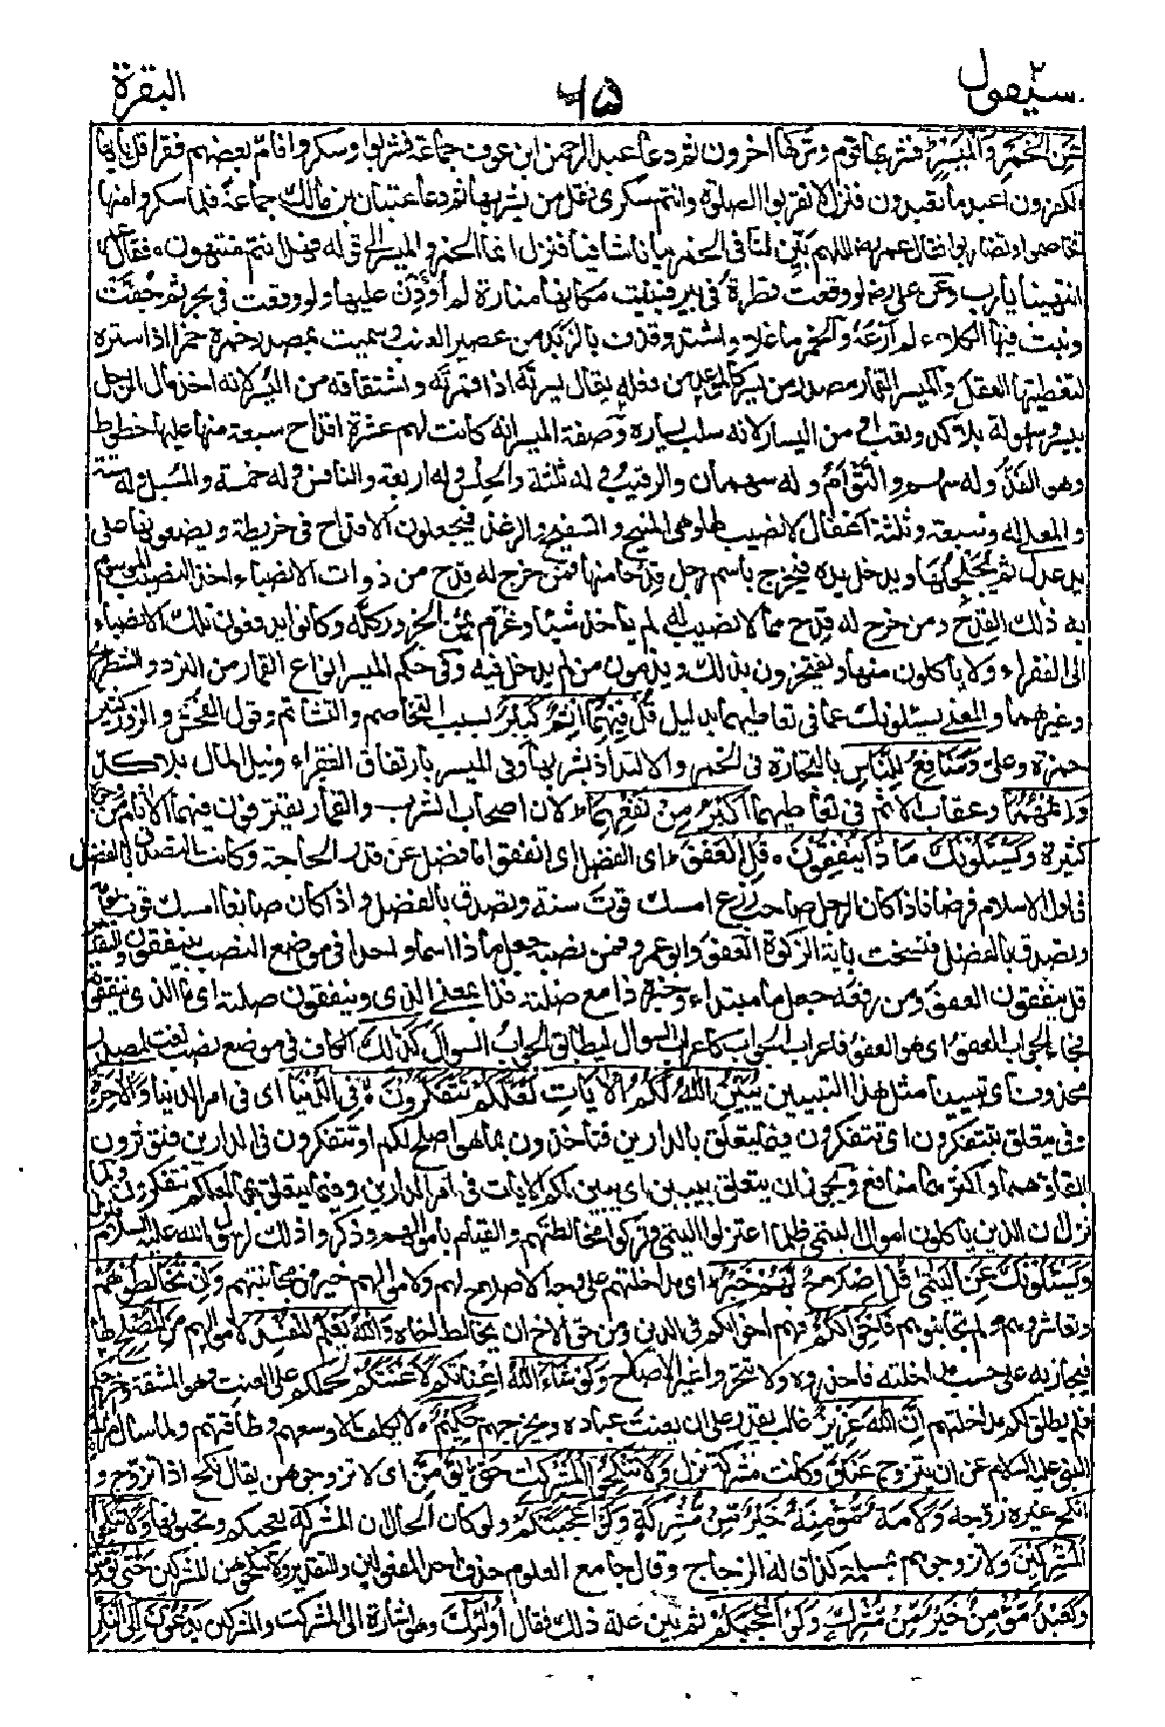 سيقول ٢
٦٥
البقرة
عَنِ الْخَمْرِ وَالْمَيْسِرِ فشربها قوم وتركها اخرون ثم دعا عبد الرحمن ابن عوف جماعة فشربوا وسكروا فامّ بعضهم فقرا قل يا ايها
الكفرون اعبد ما تعبدون فنزل لا تقربوا الصلوة وانتم سكرى فقل من يشربها ثم دعا عتبان بن مالك جماعة فلما سكروا منها
تخاصموا وتضاربوا فقال عمر رضـ اللهم بيّن لنا فى الخمر بيانا شافيا فنزل انما الخمر والميسر الى قوله فهل انتم منتهون فقال عمر
انتهينا يا رب وعن على رضـ لو وقعت قطرة فى بير فبنيت مكانها منارة لم أُوَذِّنْ عليها ولو وقعت فى بحر ثم جفّت
ونبت فيها الكلاء لم أرْعَهُ والخمر ما غلا واشتد وقذف بالزبد من عصير العنب وسميت بمصدر خمره خمرا اذا ستره
لتغطيتها العقل والميسر القمار مصدر من يسر كالموعد من فعله يقال يسرته اذا قمرته واشتقاقه من اليسر لانه اخذ مال الرجل
بيسر وسهولة بلا كد وتعب او من اليسار لانه سلب يساره وصفة الميسر انه كانت لهم عشرة اقداح سبعة منها عليها خطوط
وهو الفذّ وله سهم والتوأم وله سهمان والرقيب وله ثلثة والحلس وله اربعة والنافس وله خمسة والمسبل وله ستة
والمعلى وله سبعة وثلثة اغفال لا نصيب لها وهى المنيح والسفيح والوغد فيجعلون الاقداح فى خريطة ويضعونها على
يد عدل ثم يجلجلها ويدخل يده فيخرج باسم رجل قدحا منها فمن خرج له قدح من ذوات الانصباء اخذ النصيب الموسوم
به ذلك القدح ومن خرج له قدح مما لا نصيب له لم ياخذ شيئا وغرم ثمن الجزور كله وكانوا يدفعون تلك الانصباء
الى الفقراء ولا ياكلون منها ويفتخرون بذلك ويذمون من لم يدخل فيه وفى حكم الميسر انواع القمار من النرد والشطرنج
وغيرهما والمعنى يسئلونك عما فى تعاطيهما بدليل قُلْ فِيْهِمَا اِثْمٌ كَبِيْرٌ بسبب التخاصم والتشاتم وقول الفحش والزور كثير
حمزة وعلى وَمَنَافِعُ لِلنَّاسِ بالتجارة فى الخمر والالتذاذ بشربها وفى الميسر بارتفاق الفقراء ونيل المال بلا كد
وَاِثْمُهُمَا وعقاب الاثم فى تعاطيهما اَكْبَرُ مِنْ نَفْعِهِمَا لان اصحاب الشرب والقمار يقترفون فيهما الاثام من وجوه
كثيرة وَيَسْئَلُوْنَكَ مَا ذَا يُنْفِقُوْنَ قُلِ الْعَفْوَ اى الفضل اى انفقوا ما فضل عن قدر الحاجة وكانت التصدق بالفضل
فى اول الاسلام فرضا فاذا كان الرجل صاحب زرع امسك قوت سنة وتصدق بالفضل واذا كان صانعا امسك قوت يومه
وتصدق بالفضل فنسخت باية الزكوة العفو ابو عمرو فمن نصبه جعل ما ذا اسما واحدا فى موضع النصب بينفقون والتقدير
قل ينفقون العفو ومن رفعه جعل ما مبتداء وخبره ذا مع صلته فذا بمعنى الذى وينفقون صلته اى ما الذى ينفقونه
فجاء الجواب العفو اى هو العفو فاعراب الجواب كاعراب السوال ليطابق الجواب السوال كَذٰلِكَ الكاف فى موضع نصب نعت لمصدر
محذوف اى تبيينا مثل هذا التبيين يُبَيِّنُ اللهُ لَكُمُ الْاٰيَاتِ لَعَلَّكُمْ تَتَفَكَّرُوْنَ فِى الدُّنْيَا اى فى امر الدنيا وَالْاٰخِرَةِ
وفى متعلق بتتفكرون اى تتفكرون فيما يتعلق بالدارين فتاخذون بما هو اصلح لكم او تتفكرون فى الدارين فتوثرون
ابقاهما واكثرهما منافع ويجوز ان يتعلق بيبين اى يبين لكم الايات فى امر الدارين وفيما يتعلق بهما لعلكم تتفكرون ولما
نزل ان الذين ياكلون اموال اليتمى ظلما اعتزلوا اليتمى وتركوا مخالطتهم والقيام باموالهم وذكروا ذلك لرسول الله عليه السلام فنزل
وَيَسْئَلُوْنَكَ عَنِ الْيَتٰمٰى قُلْ اِصْلَاحٌ لَهُمْ خَيْرٌ اى مداخلتهم على وجه الاصلاح لهم ولاموالهم خير من مجانبتهم وَاِنْ تُخَالِطُوْهُمْ
وتعاشروهم ولم تجانبوهم فَاِخْوَانُكُمْ فهم اخوانكم فى الدين ومن حق الاخ ان يخالط اخاه وَاللهُ يَعْلَمُ الْمُفْسِدَ لاموالهم مِنَ الْمُصْلِحِ لها
فيجازيه على حسب مداخلته فاحذروه ولا تتحروا غير الاصلاح وَلَوْ شَاءَ اللهُ اعناتكم لَاَعْنَتَكُمْ لحملكم على العنت وهو المشقة واحرجكم
فلم يطلق لكم مداخلتهم اِنَّ اللهَ عَزِيْزٌ غالب يقدر على ان يعنت عباده ويحرجهم حَكِيْمٌ لا يكلف الا وسعهم وطاقتهم ولما سال مرثد
النبى عليه السلام عن ان يتزوج عناق وكانت مشركة نزل وَلَا تَنْكِحُوا الْمُشْرِكٰتِ حَتّٰى يُؤْمِنَّ اى لا تزوجوهن يقال نكح اذا تزوج و
انكح غيره زوجه وَلَاَمَةٌ مُّؤْمِنَةٌ خَيْرٌ مِّنْ مُّشْرِكَةٍ وَلَوْ اَعْجَبَتْكُمْ ولو كان الحال ان المشركة تعجبكم وتحبونها وَلَا تُنْكِحُوا
الْمُشْرِكِيْنَ ولا تزوجوهم بمسلمة كذا قاله الزجاج وقال جامع العلوم حذف احد المفعولين والتقدير ولا تنكحوهن المشركين حَتّٰى يُؤْمِنُوْا
وَلَعَبْدٌ مُّؤْمِنٌ خَيْرٌ مِّنْ مُّشْرِكٍ وَلَوْ اَعْجَبَكُمْ ثم بين علة ذلك فقال اُولٰئِكَ وهو اشارة الى المشركات والمشركين يَدْعُوْنَ اِلَى النَّارِ